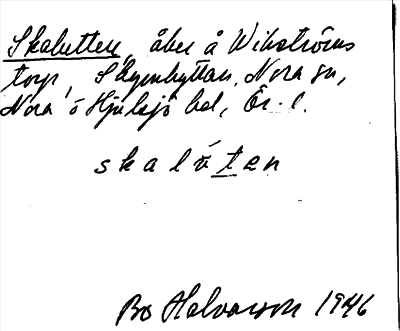 Skalutten, åker å Wikströms
torp, Skyenhyttan, Nora sn,
Nora o Hjulsjö bsl, Ör. l.
skalúten
Bo Halvarson 1946